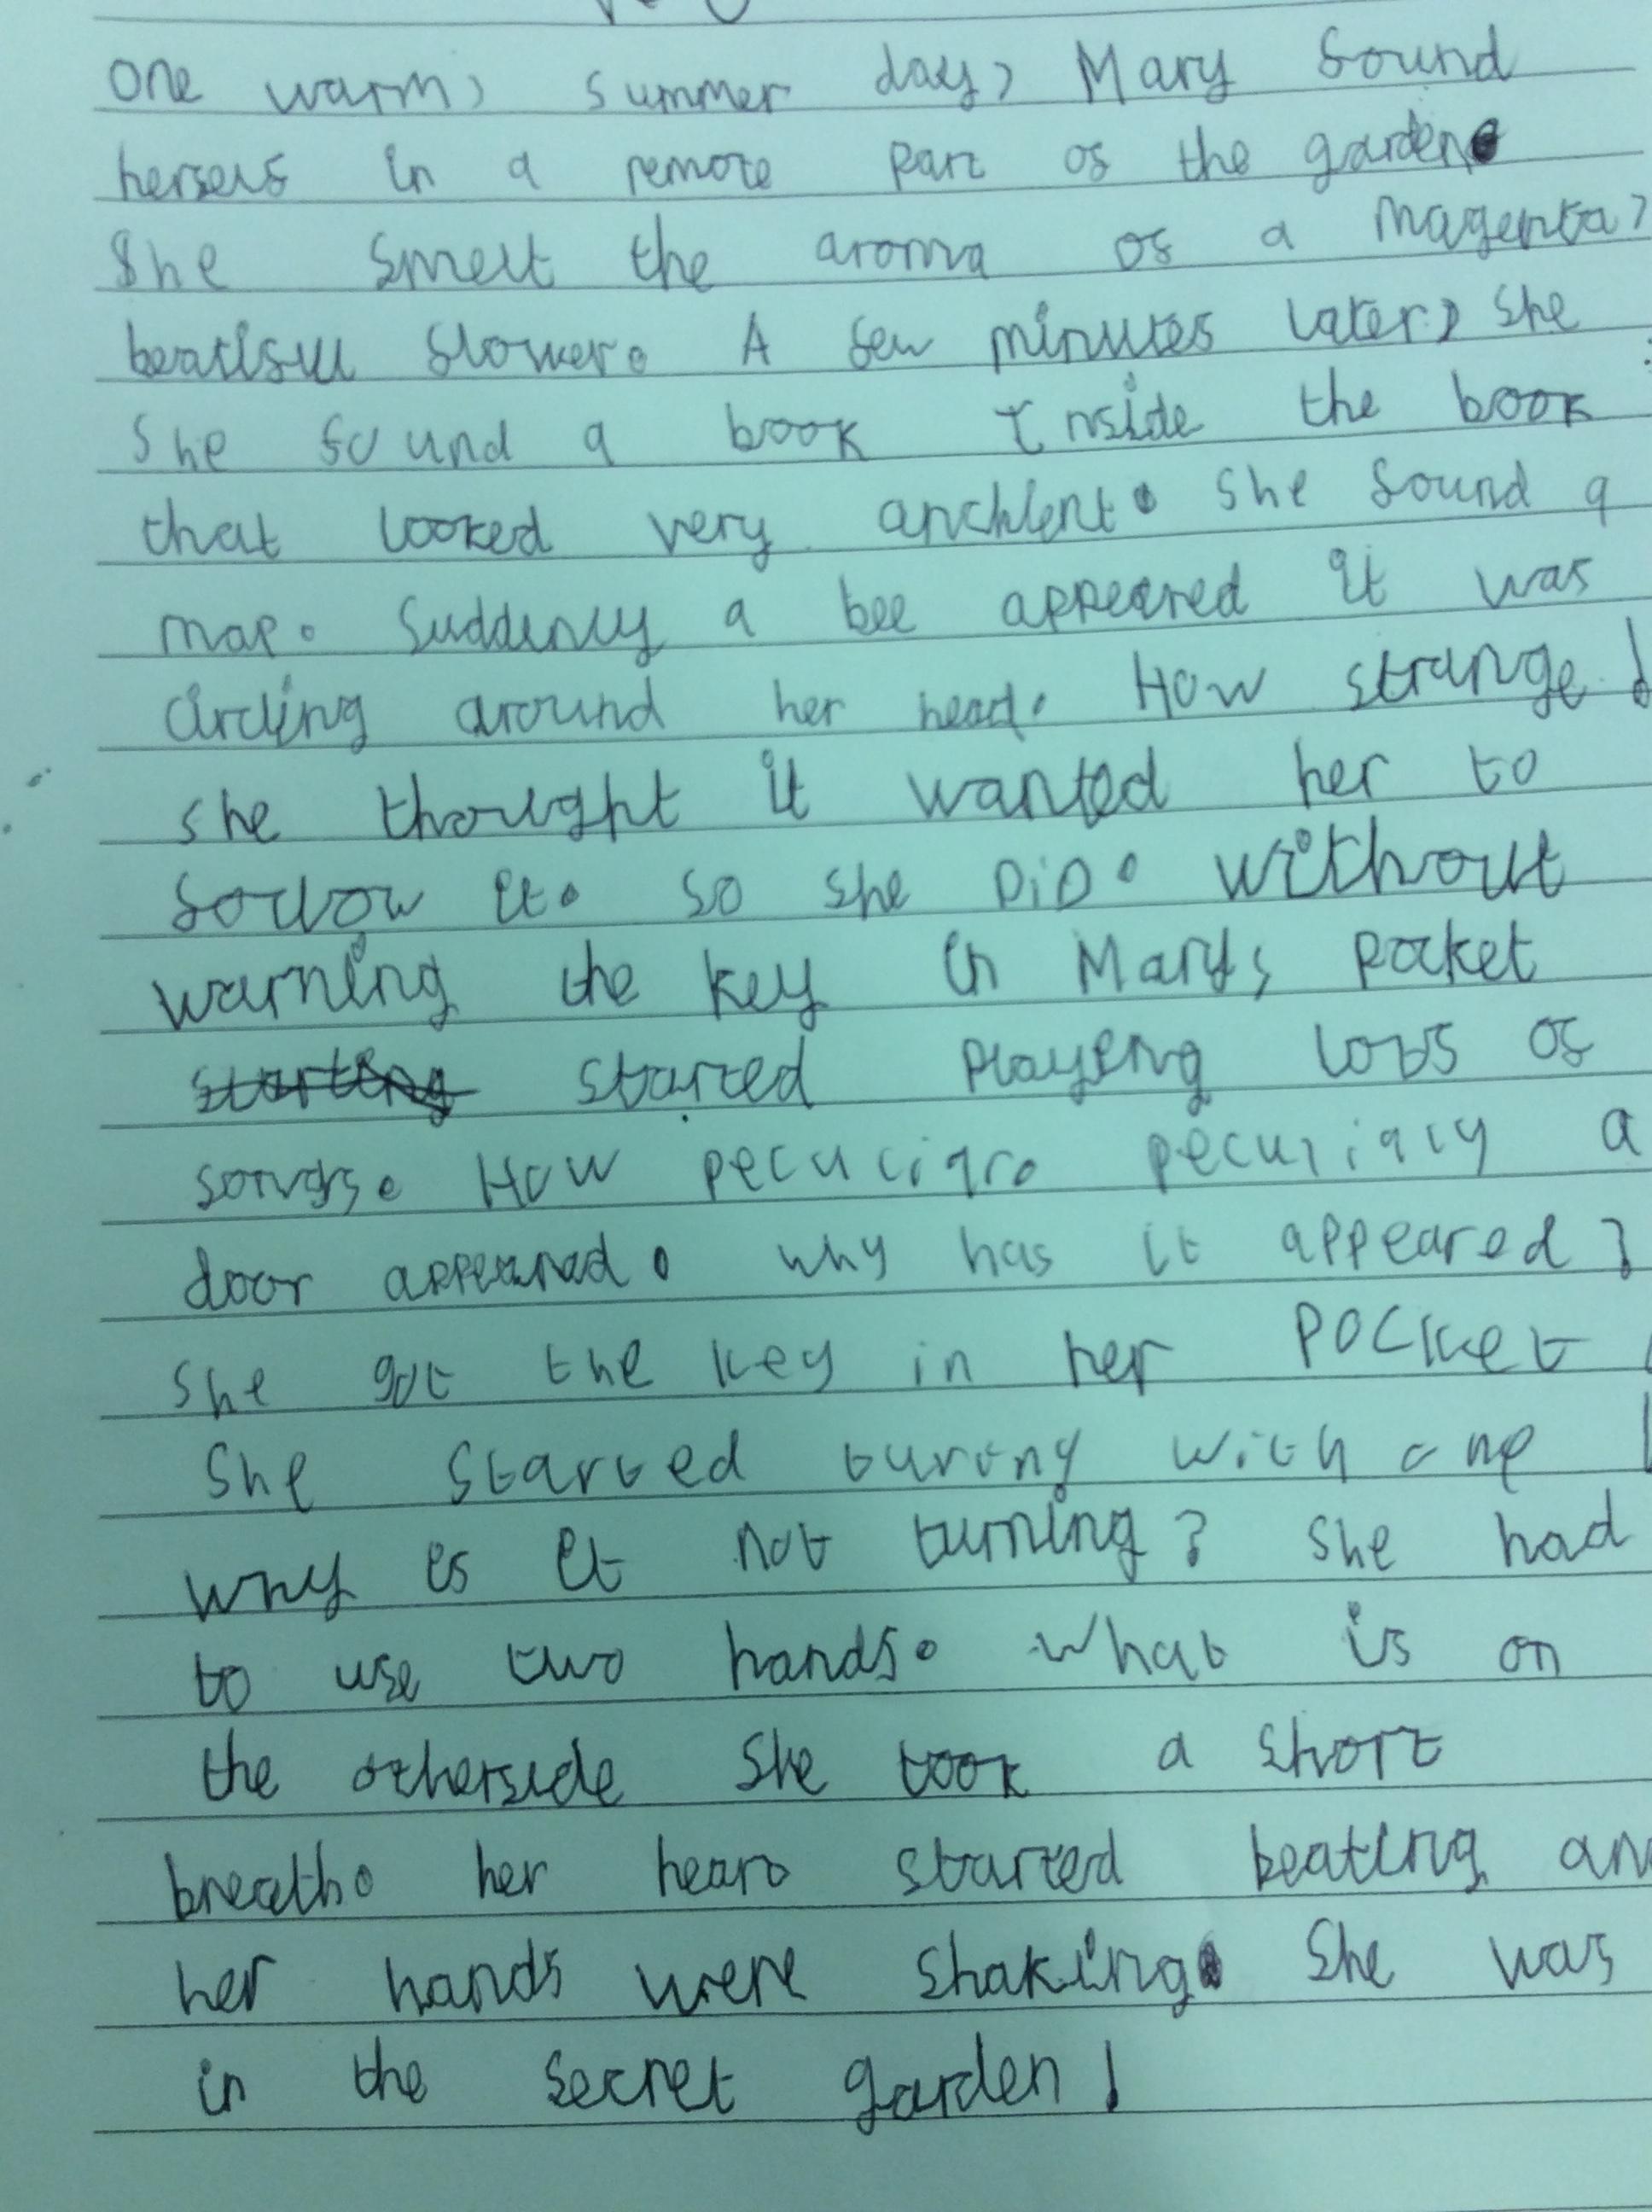 one warm, summer day, Mary found
herself in a remote part of the garden.
She smelt the aroma of a Magenta,
beatiful flower. A few minutes later, she
she found a book Inside the book
that looked very anchient. She found a
map. Suddenly a bee appeared it was
circling around her head. How strange!
she thought it wanted her to
follow it. so she DiD. without
warning the key in Marys pocket
started playing lots of
songs. How peculiar. peculialy a
door appeared. why has it appeared?
she got the key in her POCket
She started turing with one
why is it not turning? She had
to use two hands. what is on
the otherside She took a short
breath. her heart started beating an
her hands were shaking. She was
in the secret garden!